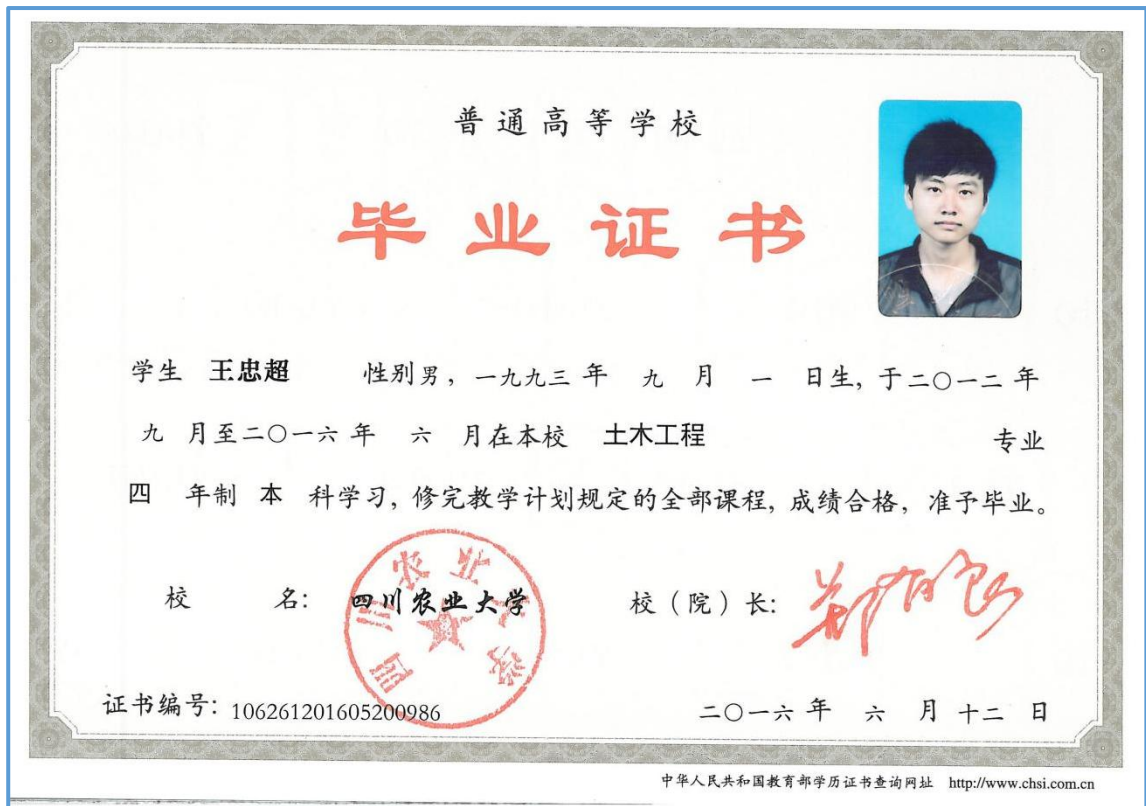 普通高等学校
毕业证书
学生 王忠超 性别男，一九九三年 九 月 一 日生，于二〇一二年
九 月至二〇一六年 六 月在本校 土木工程 专业
四 年制 本 科学习，修完教学计划规定的全部课程，成绩合格，准予毕业。
校 名： 四川农业大学 校（院）长： 郑有良
四川农业大学
证书编号：106261201605200986 二〇一六年 六 月 十二 日
中华人民共和国教育部学历证书查询网址 http://www.chsi.com.cn